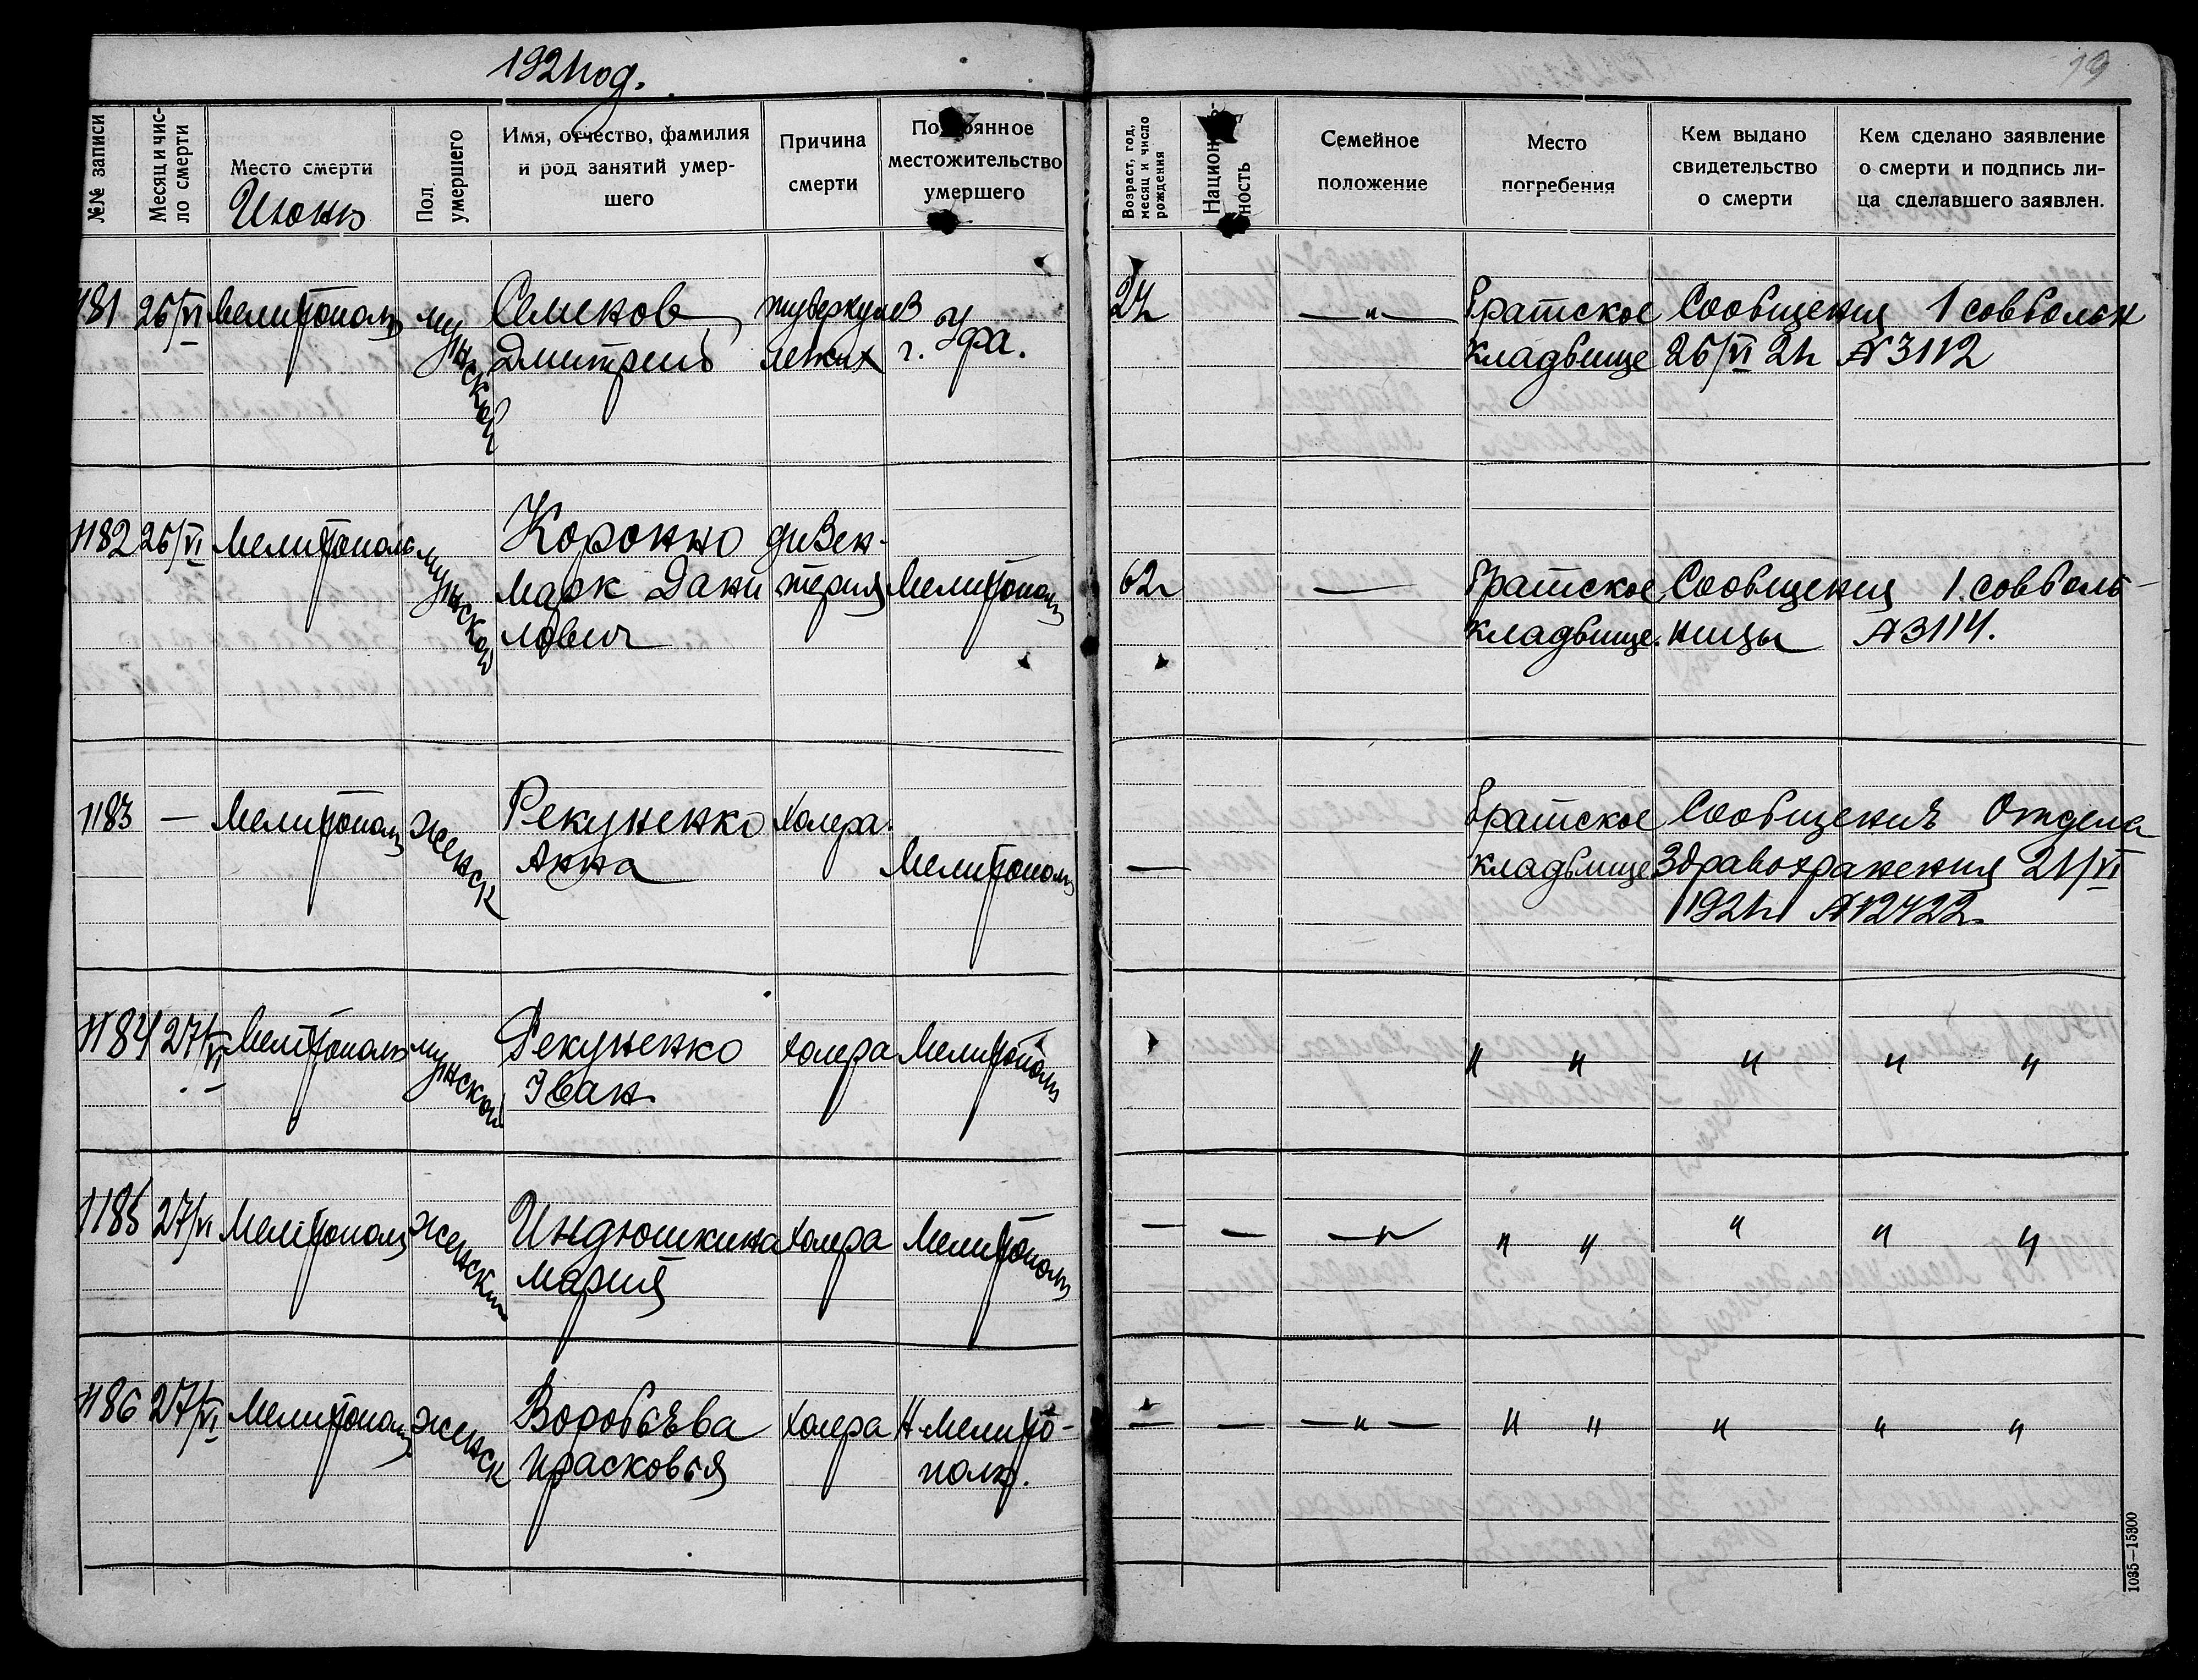 1921 год.
19
№№ записи
Месяц и число смерти
Место смерти
Июнь
Пол умершего
Имя, отчество, фамилия
и род занятий умер-
шего
Причина
смерти
местожительство
умершего
Возраст, год,
месяц и число
рождения
Семейное
положение
Место
погребения
Кем выдано
свидетельство
о смерти
Кем сделано заявление
о смерти и подпись ли-
ца сделавшего заявлен.
1181 26/VI Мелитополь мужской Семенов туберкулез Братское Сообщения 1 совболь
Дмитрий легких г. Уфа. кладбище 26/VI 21 № 3112
1182 26/VI Мелитополь мужской
Коронно дизен-
Марк Дани терия Мелитополь 62 — Братское Сообщения 1 совболь-
лович кладбище. ницы № 3114.
1183 — Мелитополь женск Рекуненко холера. Братское Сообщение Отдела
Анна Мелитополь — кладбище Здравохранения 21/VI
1921 № 2422
1184 27/VI Мелитополь мужской Рекуненко холера Мелитополь " " " " "
Иван
1185 27/VI Мелитополь женский Индюшкина холера Мелитополь — — —"— " " " " "
Мария
1186 27/VI Мелитополь женск Воробьева холера Мелито- — — —"— " " " " "
Прасковья поль.
1035—15300